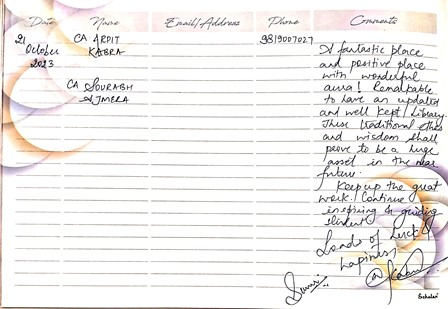 Date Name Email/Address Phone Comments
21 October 2023
CA ARPIT KABRA
CA SOURABH AJMERA
9819007027
A fantastic place
and positive place
with wonderful
aura! Remarkable
to have an updated
and well kept library.
These traditional ethos
and wisdom shall
prove to be a huge
asset in the near
future.
Keep up the great
work. Continue
inspiring & guiding
student
Loads of Luck &
happiness
Scholar